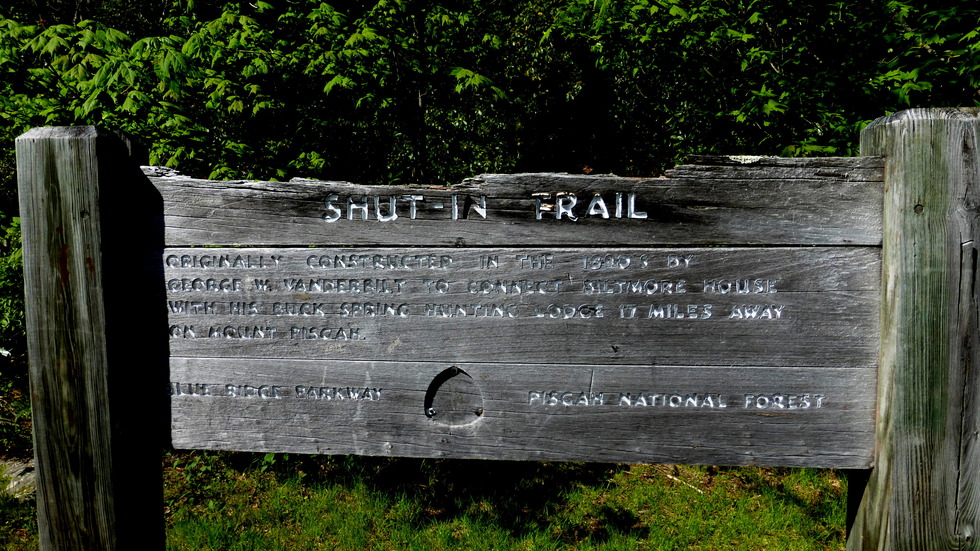 SHUT-IN TRAIL
ORIGINALLY CONSTRUCTED IN THE 1890'S BY
GEORGE W. VANDERBILT TO CONNECT BILTMORE HOUSE
WITH HIS BUCK SPRING HUNTING LODGE 17 MILES AWAY
ON MOUNT PISGAH.
BLUE RIDGE PARKWAY PISGAH NATIONAL FOREST